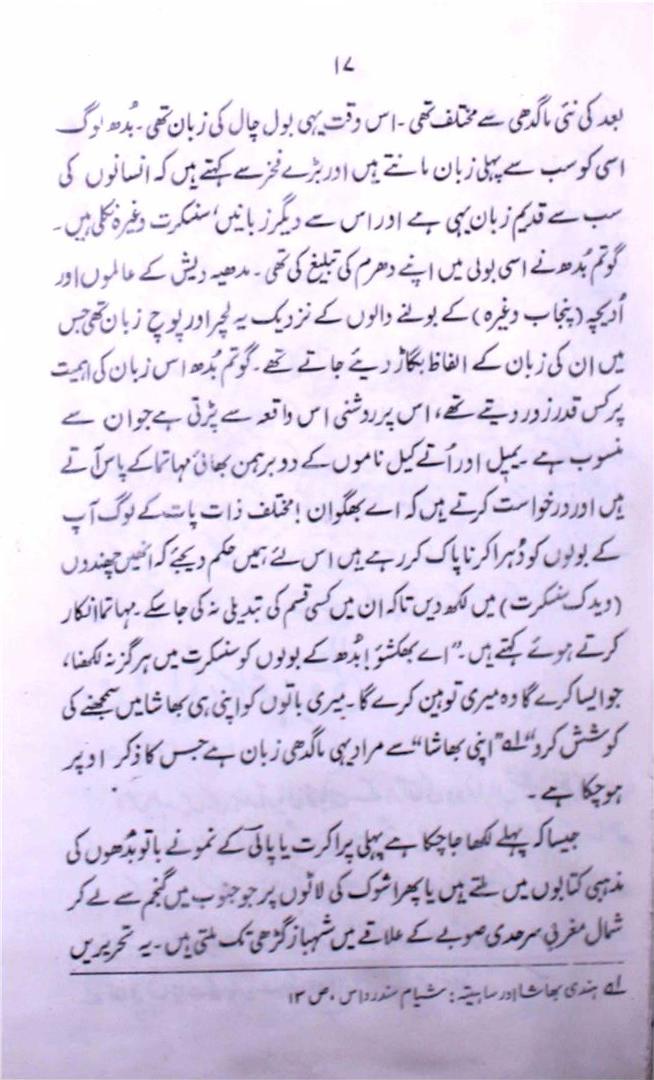 ۱۷
بعد کی نئی ماگدھی سے مختلف تھی۔ اس وقت یہی بول چال کی زبان تھی۔ بُدھ لوگ
اسی کو سب سے پہلی زبان مانتے ہیں اور بڑے فخر سے کہتے ہیں کہ انسانوں کی
سب سے قدیم زبان یہی ہے اور اس سے دیگر زبانیں' سنسکرت وغیرہ نکلی ہیں۔
گوتم بُدھ نے اسی بولی میں اپنے دھرم کی تبلیغ کی تھی۔ مدھیہ دیش کے عالموں اور
اُدیچیہ (پنجاب وغیرہ) کے بولنے والوں کے نزدیک یہ لچر اور پوچ زبان تھی جس
میں ان کی زبان کے الفاظ بگاڑ دیئے جاتے تھے۔ گوتم بُدھ اس زبان کی اہمیت
پر کس قدر زور دیتے تھے، اس پر روشنی اس واقعہ سے پڑتی ہے جو ان سے
منسوب ہے۔ یمیل اور اُتے کیل ناموں کے دو برہمن بھائی مہاتما کے پاس آتے
ہیں اور درخواست کرتے ہیں کہ اے بھگوان! مختلف ذات پات کے لوگ آپ
کے بولوں کو دُہرا کر ناپاک کر رہے ہیں اس لئے ہمیں حکم دیجئے کہ انھیں چھندوں
(ویدک سنسکرت) میں لکھ دیں تاکہ ان میں کسی قسم کی تبدیلی نہ کی جا سکے۔ مہاتما انکار
کرتے ہوئے کہتے ہیں۔ "اے بھکشوؤ! بُدھ کے بولوں کو سنسکرت میں ہرگز نہ لکھنا،
جو ایسا کرے گا وہ میری توہین کرے گا۔ میری باتوں کو اپنی ہی بھاشا میں سمجھنے کی
کوشش کرو" ؂۱ "اپنی بھاشا" سے مراد یہی ماگدھی زبان ہے جس کا ذکر اوپر
ہو چکا ہے۔
جیسا کہ پہلے لکھا جا چکا ہے پہلی پراکرت یا پالی کے نمونے یا تو بُدھوں کی
مذہبی کتابوں میں ملتے ہیں یا پھر اشوک کی لاٹوں پر جو جنوب میں گنجم سے لے کر
شمال مغربی سرحدی صوبے کے علاقے میں شہباز گڑھی تک ملتی ہیں۔ یہ تحریریں
؂۱ ہندی بھاشا اور ساہیتہ: شیام سندر داس، ص ۱۳